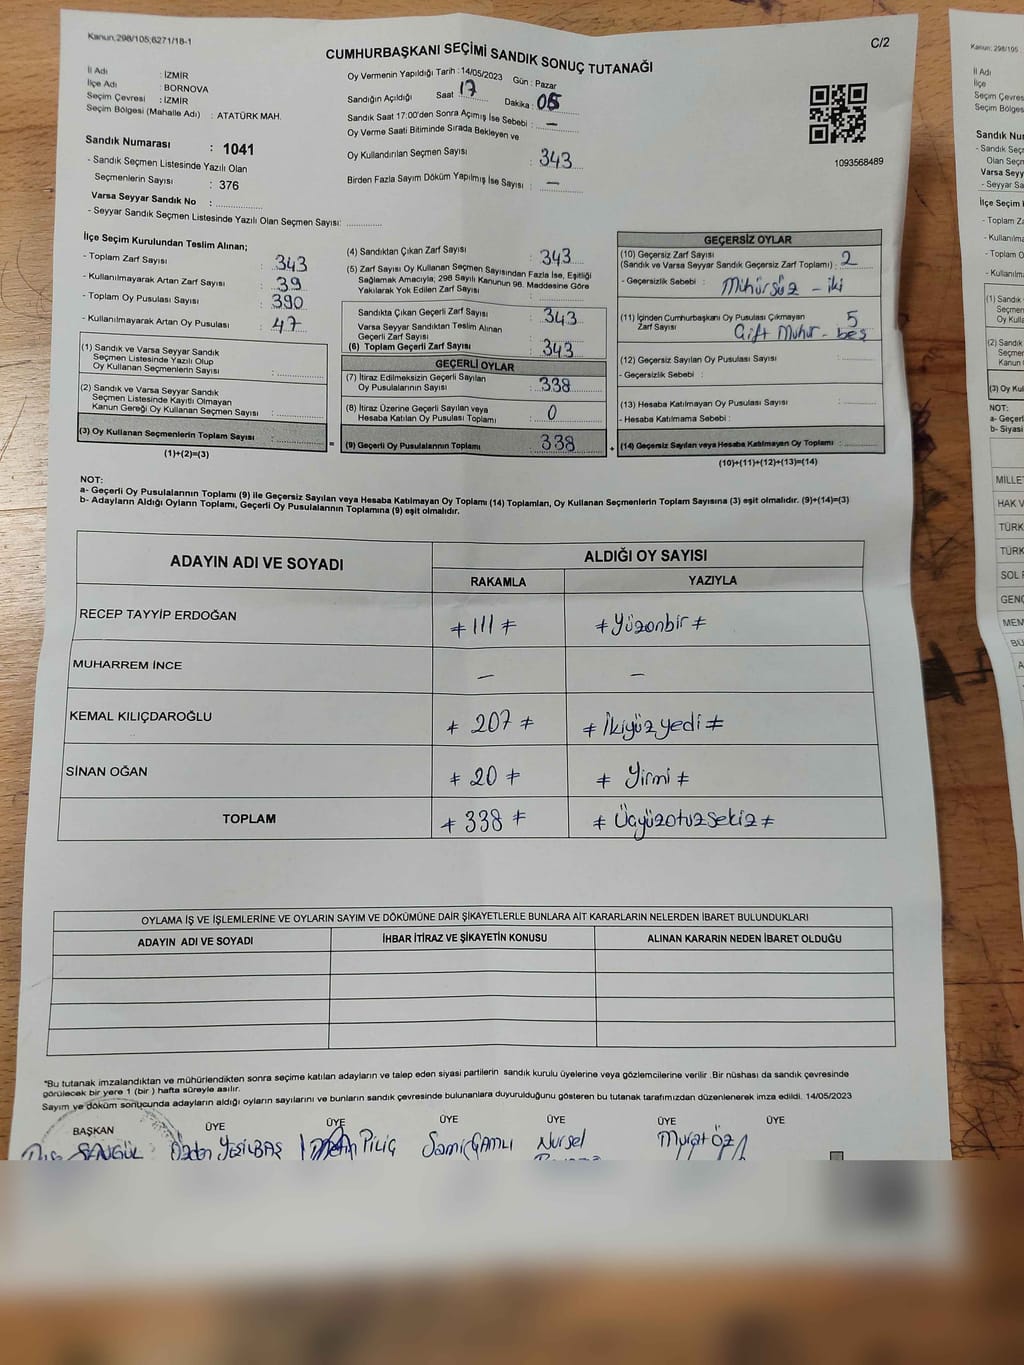 Kanun;298/105;6271/18-1
C/2
CUMHURBAŞKANI SEÇİMİ SANDIK SONUÇ TUTANAĞI
İl Adı : İZMİR
İlçe Adı : BORNOVA
Seçim Çevresi : İZMİR
Seçim Bölgesi (Mahalle Adı) : ATATÜRK MAH.
Oy Vermenin Yapıldığı Tarih : 14/05/2023 Gün : Pazar
Sandığın Açıldığı Saat 17 Dakika : 05
Sandık Saat 17:00'den Sonra Açımış İse Sebebi : —
Oy Verme Saati Bitiminde Sırada Bekleyen ve
Oy Kullandırılan Seçmen Sayısı : 343
Birden Fazla Sayım Döküm Yapılmış İse Sayısı : —
1093568489
Sandık Numarası : 1041
- Sandık Seçmen Listesinde Yazılı Olan
Seçmenlerin Sayısı : 376
Varsa Seyyar Sandık No :
- Seyyar Sandık Seçmen Listesinde Yazılı Olan Seçmen Sayısı:
İlçe Seçim Kurulundan Teslim Alınan;
- Toplam Zarf Sayısı : 343
- Kullanılmayarak Artan Zarf Sayısı : 39
- Toplam Oy Pusulası Sayısı : 390
- Kullanılmayarak Artan Oy Pusulası : 47
(1) Sandık ve Varsa Seyyar Sandık
Seçmen Listesinde Yazılı Olup
Oy Kullanan Seçmenlerin Sayısı :
(2) Sandık ve Varsa Seyyar Sandık
Seçmen Listesinde Kayıtlı Olmayan
Kanun Gereği Oy Kullanan Seçmen Sayısı :
(3) Oy Kullanan Seçmenlerin Toplam Sayısı :
(1)+(2)=(3)
(4) Sandıktan Çıkan Zarf Sayısı : 343
(5) Zarf Sayısı Oy Kullanan Seçmen Sayısından Fazla İse, Eşitliği
Sağlamak Amacıyla; 298 Sayılı Kanunun 98. Maddesine Göre
Yakılarak Yok Edilen Zarf Sayısı :
Sandıkta Çıkan Geçerli Zarf Sayısı : 343
Varsa Seyyar Sandıktan Teslim Alınan
Geçerli Zarf Sayısı :
(6) Toplam Geçerli Zarf Sayısı : 343
GEÇERLİ OYLAR
(7) İtiraz Edilmeksizin Geçerli Sayılan
Oy Pusulalarının Sayısı : 338
(8) İtiraz Üzerine Geçerli Sayılan veya
Hesaba Katılan Oy Pusulası Toplamı : 0
= (9) Geçerli Oy Pusulalarının Toplamı : 338 +
GEÇERSİZ OYLAR
(10) Geçersiz Zarf Sayısı
(Sandık ve Varsa Seyyar Sandık Geçersiz Zarf Toplamı) : 2
- Geçersizlik Sebebi : Mühürsüz - iki
(11) İçinden Cumhurbaşkanı Oy Pusulası Çıkmayan
Zarf Sayısı 5
Çift Mühür - beş
(12) Geçersiz Sayılan Oy Pusulası Sayısı :
- Geçersizlik Sebebi :
(13) Hesaba Katılmayan Oy Pusulası Sayısı :
- Hesaba Katılmama Sebebi :
(14) Geçersiz Sayılan veya Hesaba Katılmayan Oy Toplamı :
(10)+(11)+(12)+(13)=(14)
NOT:
a- Geçerli Oy Pusulalarının Toplamı (9) ile Geçersiz Sayılan veya Hesaba Katılmayan Oy Toplamı (14) Toplamları, Oy Kullanan Seçmenlerin Toplam Sayısına (3) eşit olmalıdır. (9)+(14)=(3)
b- Adayların Aldığı Oyların Toplamı, Geçerli Oy Pusulalarının Toplamına (9) eşit olmalıdır.
ADAYIN ADI VE SOYADI
ALDIĞI OY SAYISI
RAKAMLA YAZIYLA
RECEP TAYYİP ERDOĞAN ≠ 111 ≠ ≠ Yüzonbir ≠
MUHARREM İNCE — —
KEMAL KILIÇDAROĞLU ≠ 207 ≠ ≠ İkiyüz yedi ≠
SİNAN OĞAN ≠ 20 ≠ ≠ Yirmi ≠
TOPLAM ≠ 338 ≠ ≠ Üçyüzotuzsekiz ≠
OYLAMA İŞ VE İŞLEMLERİNE VE OYLARIN SAYIM VE DÖKÜMÜNE DAİR ŞİKAYETLERLE BUNLARA AİT KARARLARIN NELERDEN İBARET BULUNDUKLARI
ADAYIN ADI VE SOYADI İHBAR İTİRAZ VE ŞİKAYETİN KONUSU ALINAN KARARIN NEDEN İBARET OLDUĞU
*Bu tutanak imzalandıktan ve mühürlendikten sonra seçime katılan adayların ve talep eden siyasi partilerin sandık kurulu üyelerine veya gözlemcilerine verilir .Bir nüshası da sandık çevresinde
görülecek bir yere 1 (bir ) hafta süreyle asılır.
Sayım ve döküm sonucunda adayların aldığı oyların sayılarını ve bunların sandık çevresinde bulunanlara duyurulduğunu gösteren bu tutanak tarafımızdan düzenlenerek imza edildi. 14/05/2023
BAŞKAN ÜYE ÜYE ÜYE ÜYE ÜYE ÜYE
ŞENGÜL Özden YEŞİLBAŞ Metin PİLİÇ Samiç ÇAMLI Nursel Murat ÖZ
Kanun; 298/105
İl Adı
İlçe
Seçim Çevres
Seçim Bölges
Sandık Nu
- Sandık Seç
Olan Seçm
Varsa Seyy
- Seyyar Sa
İlçe Seçim
- Toplam Za
- Kullanılma
- Toplam O
- Kullanılma
(1) Sandık
(2) Sandık
(3) Oy Kul
NOT:
a- Geçerl
b- Siyasi
MİLLE
HAK V
TÜRK
TÜRK
SOL F
GENÇ
MEM
BÜ